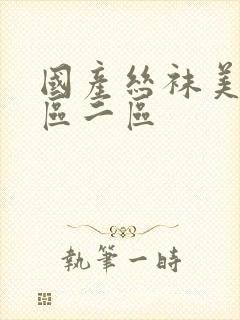 國產絲袜美
區二區
執筆一時